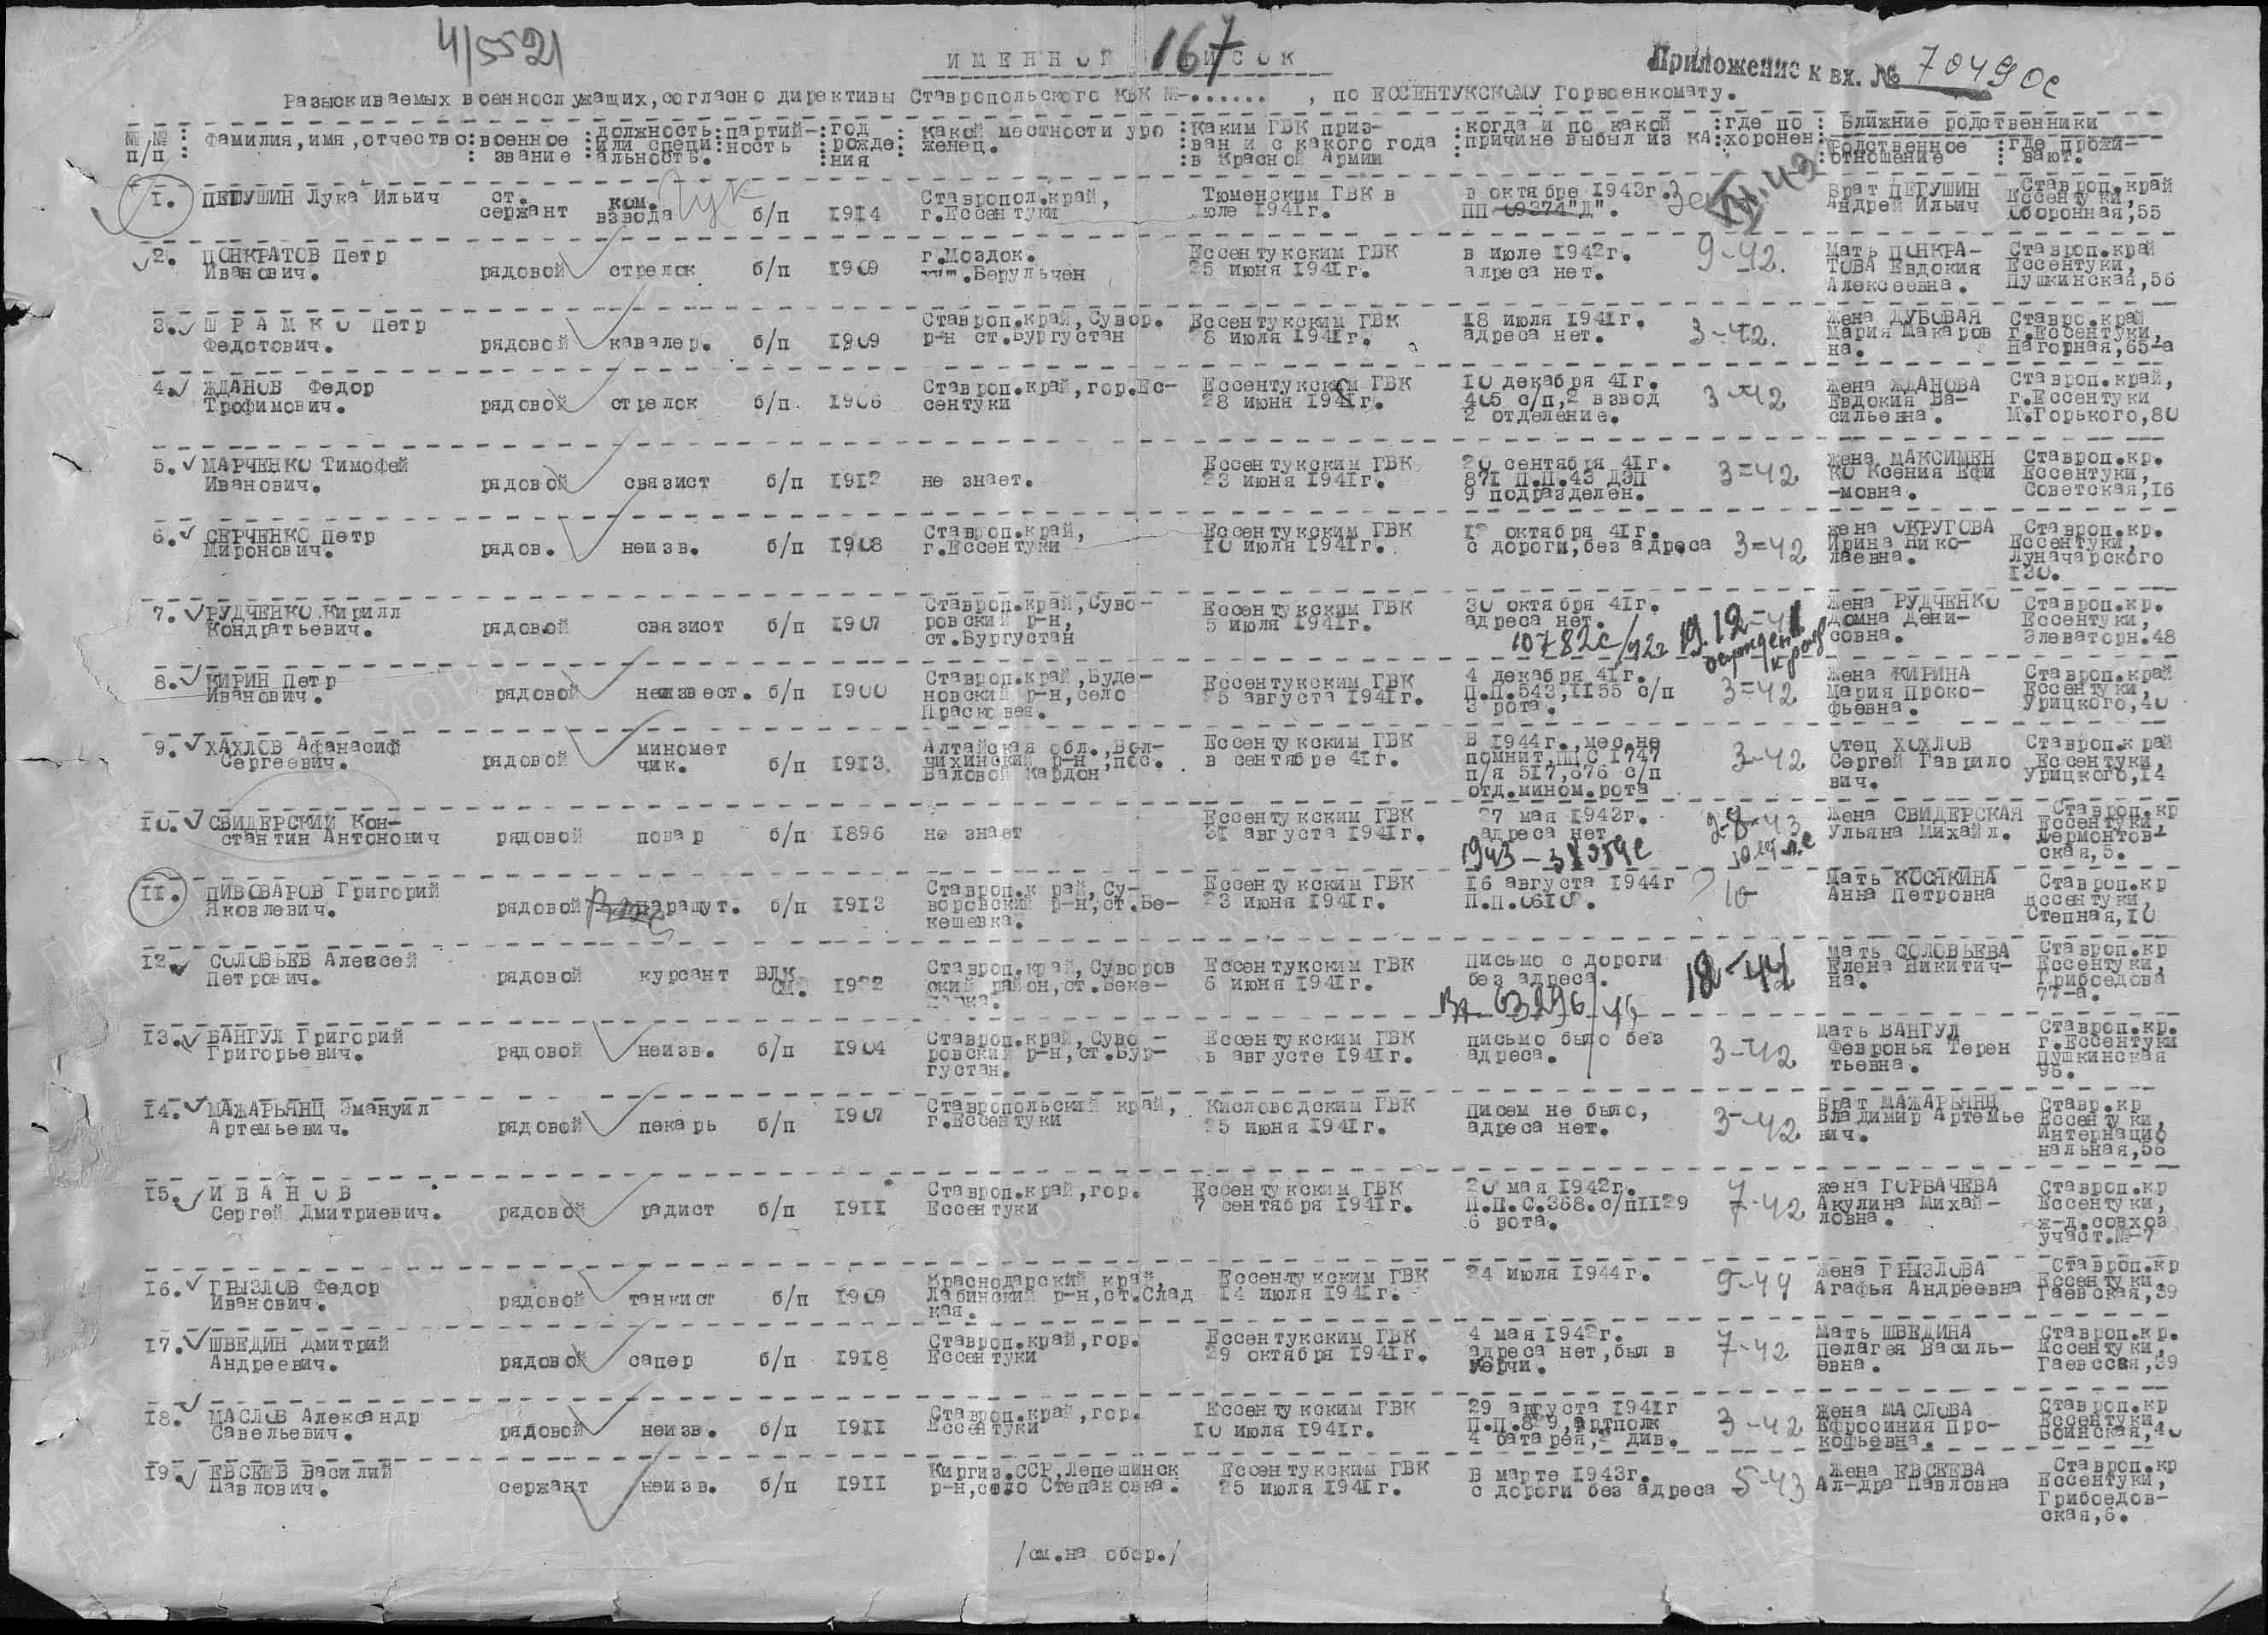 4/5521
ИМЕННОЙ СПИСОК
167
Приложение к вх. № 70490с
Разыскиваемых военнослужащих, согласно директивы Ставропольского КВК №-...... , по ЕССЕНТУКСКОМУ Горвоенкомату.
№№ п/п : Фамилия, имя, отчество : военное звание : должность или специальность. : партийность : год рождения : какой местности уроженец. : Каким ГВК призван и с какого года в Красной Армии : когда и по какой причине выбыл из КА : где похоронен : Ближние родственники
родственное отношение : где проживают.
1. ПЕТУШИН Лука Ильич ст. сержант ком. взвода б/п 1914 Ставропол.край, г.Ессентуки Тюменским ГВК в юле 1941г. в октябре 1943г. ПП 69374"Д". Брат ПЕТУШИН Андрей Ильич Ставроп.край Ессентуки, Оборонная,55
2. ПОНКРАТОВ Петр Иванович. рядовой стрелок б/п 1909 г.Моздок. .Берульчен Ессентукским ГВК 25 июня 1941г. в июле 1942г. адреса нет. 9-42. Мать ПОНКРАТОВА Евдокия Алексеевна. Ставроп.край Ессентуки, Пушкинская,56
3. ШРАМКО Петр Федотович. рядовой кавалер. б/п 1909 Ставроп.край, Сувор. р-н ст.Бургустан Ессентукским ГВК 8 июля 1941г. 18 июля 1941г. адреса нет. 3-42. Жена ДУБОВАЯ Мария Макаровна. Ставро.край г.Ессентуки, Нагорная,65-а
4. ЖДАНОВ Федор Трофимович. рядовой стрелок б/п. 1906 Ставроп.край, гор.Ессентуки Ессентукским ГВК 28 июня 1941г. 10 декабря 41г. 405 с/п, 2 взвод 2 отделение. 3-42 Жена ЖДАНОВА Евдокия Васильевна. Ставроп.край, г.Ессентуки М.Горького,80
5. МАРЧЕНКО Тимофей Иванович. рядовой связист б/п 1912 не знает. Ессентукским ГВК 23 июня 1941г. 20 сентября 41г. 871 П.П.43 ДЭП 9 подразделен. 3=42 Жена МАКСИМЕНКО Ксения Ефи-мовна. Ставроп.кр. Ессентуки, Советская,16
6. СЕРЧЕНКО Петр Миронович. рядов. неизв. б/п 1908 Ставроп.край, г.Ессентуки Ессентукским ГВК 10 июля 1941г. 12 октября 41г. с дороги, без адреса 3=42 жена ОКРУГОВА Ирина Николаевна. Ставроп.кр. Ессентуки, Луначарского 130.
7. РУДЧЕНКО Кирилл Кондратьевич. рядовой связист б/п 1907 Ставроп.край, Суворовский р-н, ст.Бургустан Ессентукским ГВК 5 июля 1941г. 30 октября 41г. адреса нет. 10782с/42г 19.12-41 Жена РУДЧЕНКО Домна Денисовна. Ставроп.кр. Ессентуки, Элеваторн.48
8. КИРИН Петр Иванович. рядовой неизвест. б/п 1900 Ставроп.край, Буденновский р-н, село Прасковея. Ессентукским ГВК 25 августа 1941г. 4 декабря 41г. П.П.543,1155 с/п 3 рота. 3=42 Жена КИРИНА Мария Прокофьевна. Ставроп.край Ессентуки, Урицкого,40
9. ХАХЛОВ Афанасий Сергеевич. рядовой минометчик. б/п 1913 Алтайская обл., Волчихинский р-н, пос. Валовой Кардон Ессентукским ГВК в сентябре 41г. В 1944г., мес.не помнит, ППС 1747 п/я 517,676 с/п отд.мином.рота 3-42 отец ХОХЛОВ Сергей Гаврилович. Ставроп.край Ессентуки, Урицкого,14
10. СВИДЕРСКИЙ Константин Антонович рядовой повар б/п 1896 не знает Ессентукским ГВК 31 августа 1941г. 27 мая 1943г. адреса нет. 2-8-43 Жена СВИДЕРСКАЯ Ульяна Михайл. Ставроп.кр Ессентуки, Лермонтовская,5.
11. ПИВОВАРОВ Григорий Яковлевич. рядовой парашут. б/п 1913 Ставроп.край, Суворовский р-н, ст.Бекешевка. Ессентукским ГВК 23 июня 1941г. 16 августа 1944г П.П.0610. 10- Мать КОСЯКИНА Анна Петровна Ставроп.кр Ессентуки, Степная,10
12. СОЛОВЬЕВ Алексей Петрович. рядовой курсант ВЛКСМ. 1922 Ставроп.край, Суворовский район, ст.Беке- Ессентукским ГВК 6 июня 1941г. письмо с дороги без адреса. Вх-63296/46 Мать СОЛОВЬЕВА Елена Никитична. Ставроп.кр Ессентуки, Грибоедова 77-а.
13. ВАНГУЛ Григорий Григорьевич. рядовой неизв. б/п 1904 Ставроп.край, Суворовский р-н, ст.Бургустан. Ессентукским ГВК в августе 1941г. письмо было без адреса. 3-42 Мать ВАНГУЛ Февронья Терентьевна. Ставроп.кр. г.Ессентуки Пушкинская 96.
14. МАЖАРЬЯНЦ Эмануил Артемьевич. рядовой пекарь б/п 1907 Ставропольский край, г.Ессентуки Кисловодским ГВК 25 июня 1941г. Писем не было, адреса нет. 3-42 Брат МАЖАРЬЯНЦ Владимир Артемьевич. Ставр.кр Ессентуки, Интернациональная,56
15. ИВАНОВ Сергей Дмитриевич. рядовой радист б/п 1911 Ставроп.край, гор. Ессентуки Ессентукским ГВК 7 сентября 1941г. 20 мая 1942г. П.П.С.368.с/п1129 6 рота. 7-42 жена ГОРБАЧЕВА Акулина Михайловна. Ставроп.кр Ессентуки, ж-д.совхоз участ.№-7
16. ГРЫЗЛОВ Федор Иванович. рядовой танкист б/п 1909 Краснодарский край, Лабинский р-н, ст.Сладкая. Ессентукским ГВК 14 июля 1941г. 24 июля 1944г. 9-44 Жена ГРЫЗЛОВА Агафья Андреевна Ставроп.кр Ессентуки, Гаевская,39
17. ШВЕДИН Дмитрий Андреевич. рядовой сапер б/п 1918 Ставроп.край, гор. Ессентуки Ессентукским ГВК 29 октября 1941г. 4 мая 1942г. адреса нет, был в Керчи. 7-42 Мать ШВЕДИНА Пелагея Васильевна. Ставроп.кр. Ессентуки, Гаевсская,39
18. МАСЛОВ Александр Савельевич. рядовой неизв. б/п 1911 Ставроп.край, гор. Ессентуки Ессентукским ГВК 10 июля 1941г. 29 августа 1941г П.П.829, артполк 4 батарея, 2 див. 3-42 Жена МАСЛОВА Ефросиния Прокофьевна. Ставроп.кр Ессентуки, Воинская,40
19. ЕВСЕЕВ Василий Павлович. сержант неизв. б/п 1911 Киргиз.ССР, Лепешинск р-н, село Степановка. Ессентукским ГВК 25 июля 1941г. В марте 1943г. с дороги без адреса 5-43 Жена ЕВСЕЕВА Ал-дра Павловна Ставроп.кр Ессентуки, Грибоедовская,6.
/см.на обор./